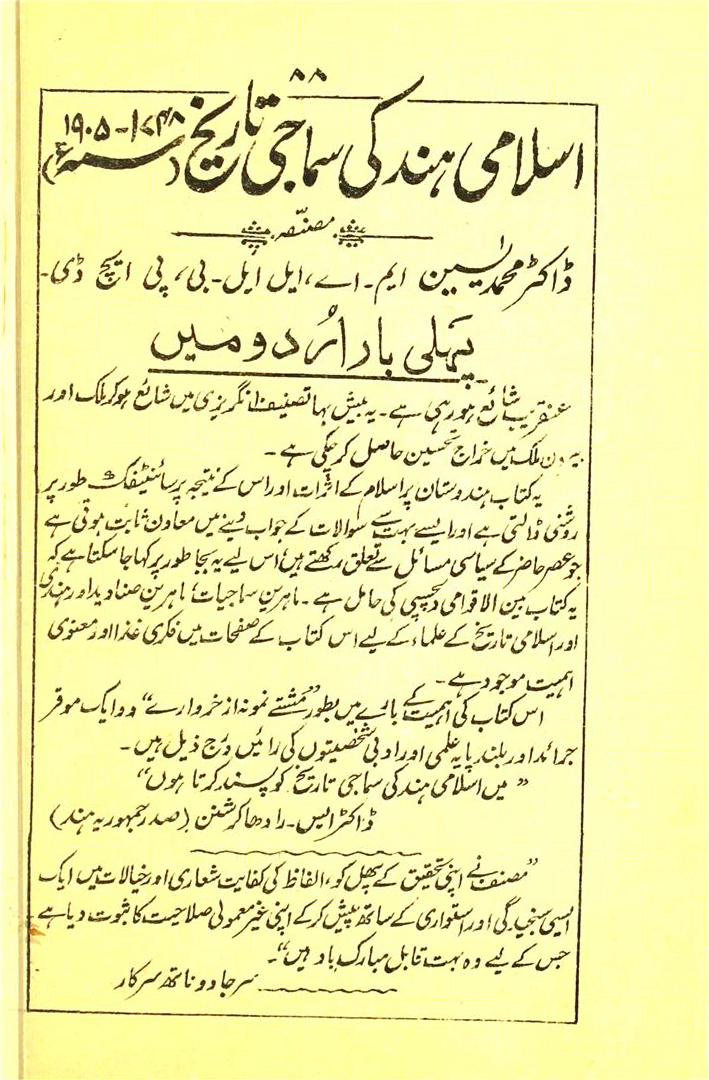 ۸۸
اسلامی ہند کی سماجی تاریخ (۱۹۰۵-۱۷۴۸ سنہ ء)
مصنفہ
ڈاکٹر محمد یٰسین ایم۔اے، ایل ایل۔بی، پی ایچ ڈی۔
پہلی بار اُردو میں
عنقریب شائع ہو رہی ہے۔ یہ بیش بہا تصنیف انگریزی میں شائع ہو کر ملک اور
بیرون ملک میں خراج تحسین حاصل کر چکی ہے۔
یہ کتاب ہندوستان پر اسلام کے اثرات اور اس کے نتیجہ پر سائنٹیفک طور پر
روشنی ڈالتی ہے اور ایسے بہت سے سوالات کے جواب دینے میں معاون ثابت ہوتی ہے
جو عصر حاضر کے سیاسی مسائل سے تعلق رکھتے ہیں، اس لیے یہ بجا طور پر کہا جا سکتا ہے کہ
یہ کتاب بین الاقوامی دلچسپی کی حامل ہے۔ ماہرین سماجیات، ماہرین صنادید اور ہندی
اور اسلامی تاریخ کے علماء کے لیے اس کتاب کے صفحات میں فکری غذا اور معنوی
اہمیت موجود ہے۔
اس کتاب کی اہمیت کے بارے میں بطور "مُشتے نمونہ از خروارے" دو ایک موقر
جرائد اور بلند پایہ علمی اور ادبی شخصیتوں کی رائیں درج ذیل ہیں۔
"میں اسلامی ہند کی سماجی تاریخ کو پسند کرتا ہوں"
ڈاکٹر ایس۔ رادھا کرشنن (صدر جمہوریہ ہند)
"مصنف نے اپنی تحقیق کے پھل کو، الفاظ کی کفایت شعاری اور خیالات میں ایک
ایسی سنجیدگی اور استواری کے ساتھ پیش کر کے اپنی غیر معمولی صلاحیت کا ثبوت دیا ہے
جس کے لیے وہ بہت قابل مبارک باد ہیں"۔
سر جادو ناتھ سرکار